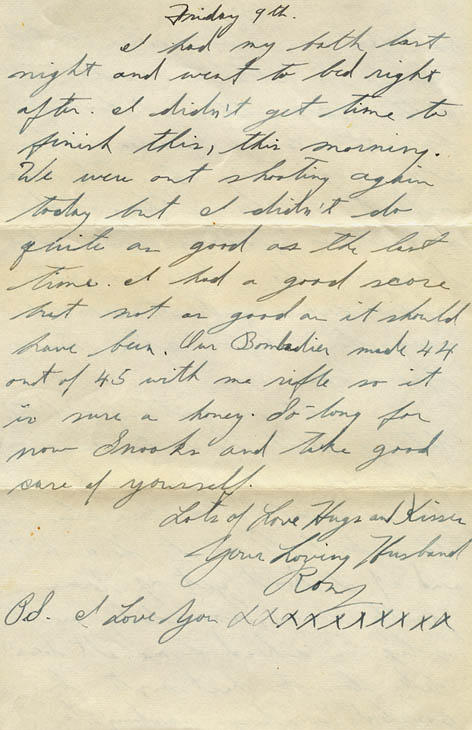 Friday 9th.
I had my bath last
night and went to bed right
after. I didn't get time to
finish this, this morning.
We were out shooting again
today but I didn't do
quite as good as the last
time. I had a good score
but not as good as it should
have been. Our Bombadier made 44
out of 45 with me rifle so it
is sure a honey. So long for
now Snooks and take good
care of yourself.
Lots of Love Hugs and Kisses
Your Loving Husband
P.S. I Love You XXXXXXXXXXX